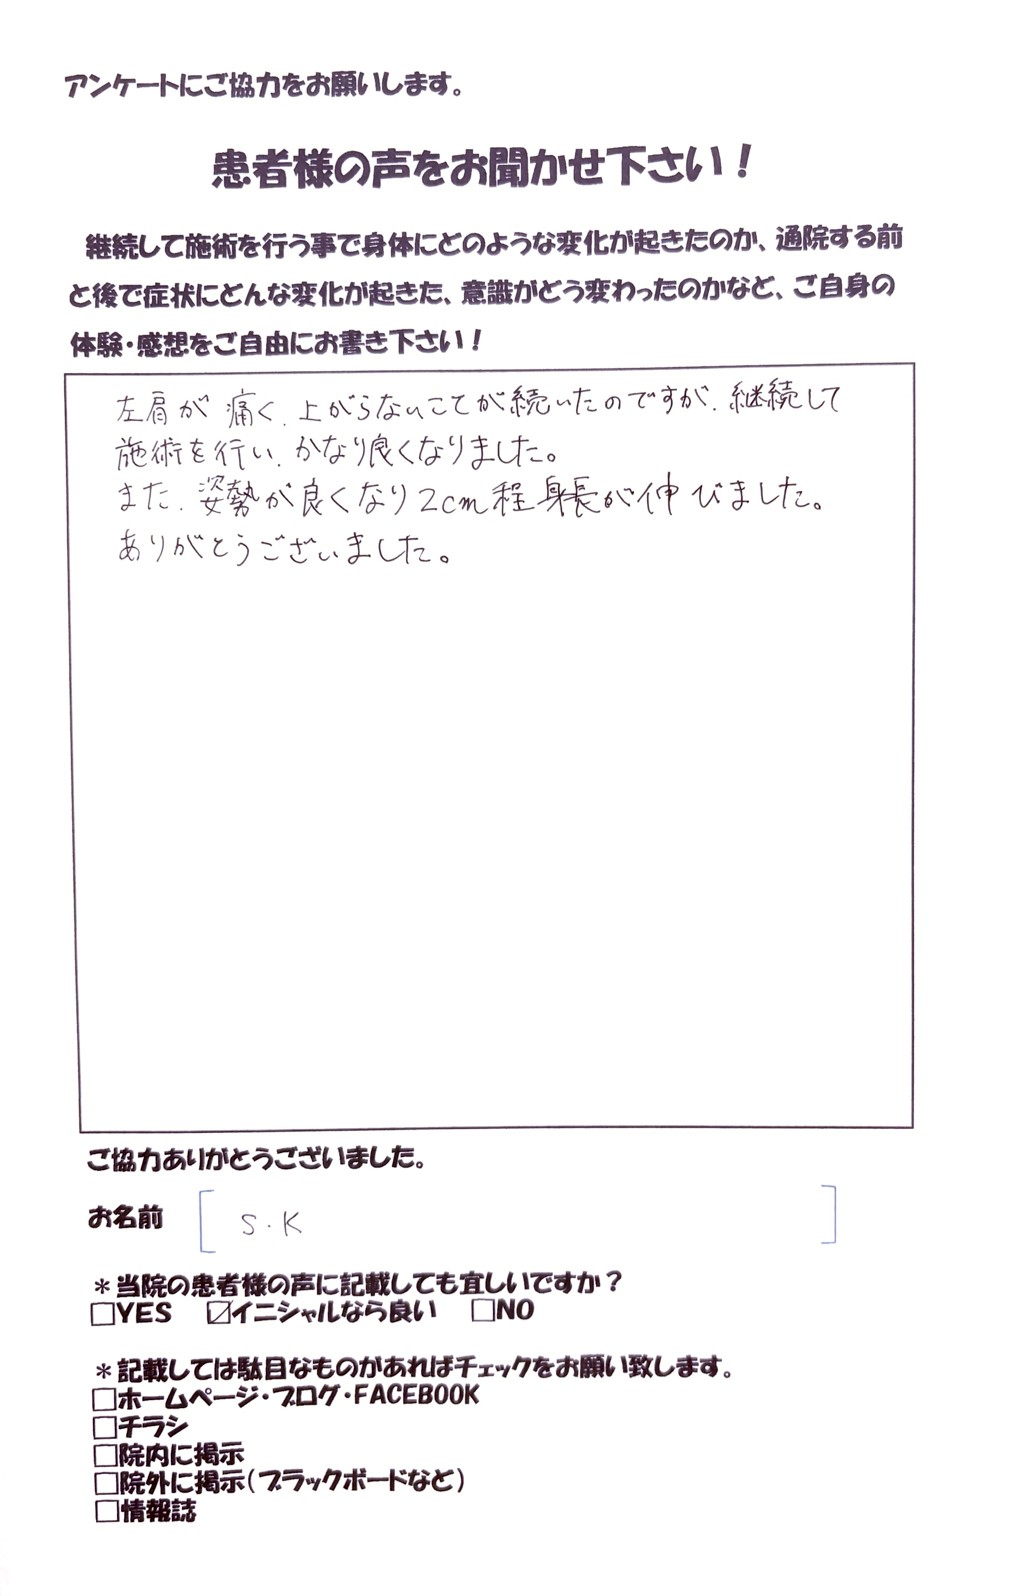 アンケートにご協力をお願いします。
患者様の声をお聞かせ下さい！
継続して施術を行う事で身体にどのような変化が起きたのか、通院する前
と後で症状にどんな変化が起きた、意識がどう変わったのかなど、ご自身の
体験・感想をご自由にお書き下さい！
左肩が痛く、上がらないことが続いたのですが、継続して
施術を行い、かなり良くなりました。
また、姿勢が良くなり2cm程身長が伸びました。
ありがとうございました。
ご協力ありがとうございました。
お名前 [ S.K ]
＊当院の患者様の声に記載しても宜しいですか？
□YES ☑イニシャルなら良い □NO
＊記載しては駄目なものがあればチェックをお願い致します。
□ホームページ・ブログ・FACEBOOK
□チラシ
□院内に掲示
□院外に掲示（ブラックボードなど）
□情報誌